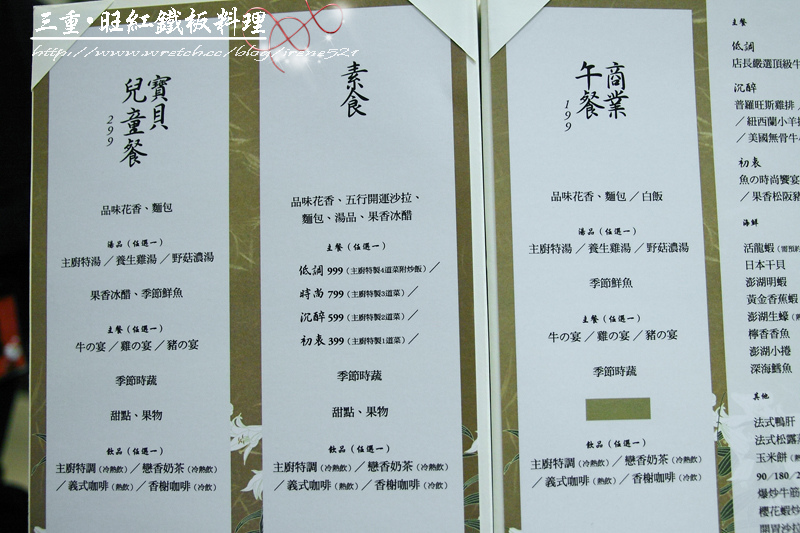 三重‧旺紅鐵板料理
http://www.wretch.cc/blog/irene521
寶貝
兒童餐
299
品味花香、麵包
湯品（任選一）
主廚特湯／養生雞湯／野菇濃湯
果香冰醋、季節鮮魚
主餐（任選一）
牛の宴／雞の宴／豬の宴
季節時蔬
甜點、果物
飲品（任選一）
主廚特調（冷熱飲）／戀香奶茶（冷熱飲）
／義式咖啡（熱飲）／香榭咖啡（冷飲）
素食
品味花香、五行開運沙拉、
麵包、湯品、果香冰醋
主餐（任選一）
低調 999（主廚特製4道菜附炒飯）／
時尚 799（主廚特製3道菜）／
沉醉 599（主廚特製2道菜）／
初衷 399（主廚特製1道菜）／
季節時蔬
甜點、果物
飲品（任選一）
主廚特調（冷熱飲）／戀香奶茶（冷熱飲）
／義式咖啡（熱飲）／香榭咖啡（冷飲）
商業
午餐
199
品味花香、麵包／白飯
湯品（任選一）
主廚特湯／養生雞湯／野菇濃湯
季節鮮魚
主餐（任選一）
牛の宴／雞の宴／豬の宴
季節時蔬
飲品（任選一）
主廚特調（冷熱飲）／戀香奶茶（冷熱飲）
／義式咖啡（熱飲）／香榭咖啡（冷飲）
主餐
低調
店長嚴選頂級牛
沉醉
普羅旺斯雞排
／紐西蘭小羊排
／美國無骨牛
初衷
魚の時尚饗宴
／果香松阪豬
海鮮
活龍蝦（需預約
日本干貝
澎湖明蝦
黃金香蕉蝦
澎湖生蠔（熱
檸香香魚
澎湖小捲
深海鱈魚
其他
法式鴨肝
法式松露
玉米餅（熱
90/180/2
爆炒牛筋
櫻花蝦炒
開胃沙拉